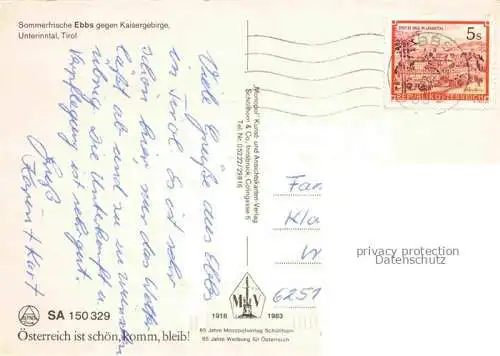 Sommerfrische Ebbs gegen Kaisergebirge,
Unterinntal, Tirol
Viele Grüße aus Ebbs
in Tirol. Es ist sehr
schön hier nur das Wetter
läßt ab und zu zu wünschen
übrig. Die Unterkunft u.
Verpflegung ist sehr gut.
Gruß
Karin + Kurt
"Monopol" Kunst- und Ansichtskarten-Verlag
Schöllhorn & Co, Innsbruck, Colingasse 6
Tel. Nr. 05222/29816
5s
REPUBLIK ÖSTERREICH
Fam
Kla
W
6251
privacy protection
Datenschutz
SA 150 329
Österreich ist schön, komm, bleib!
M V
1918 1983
65 Jahre Monopolverlag Schöllhorn
65 Jahre Werbung für Österreich